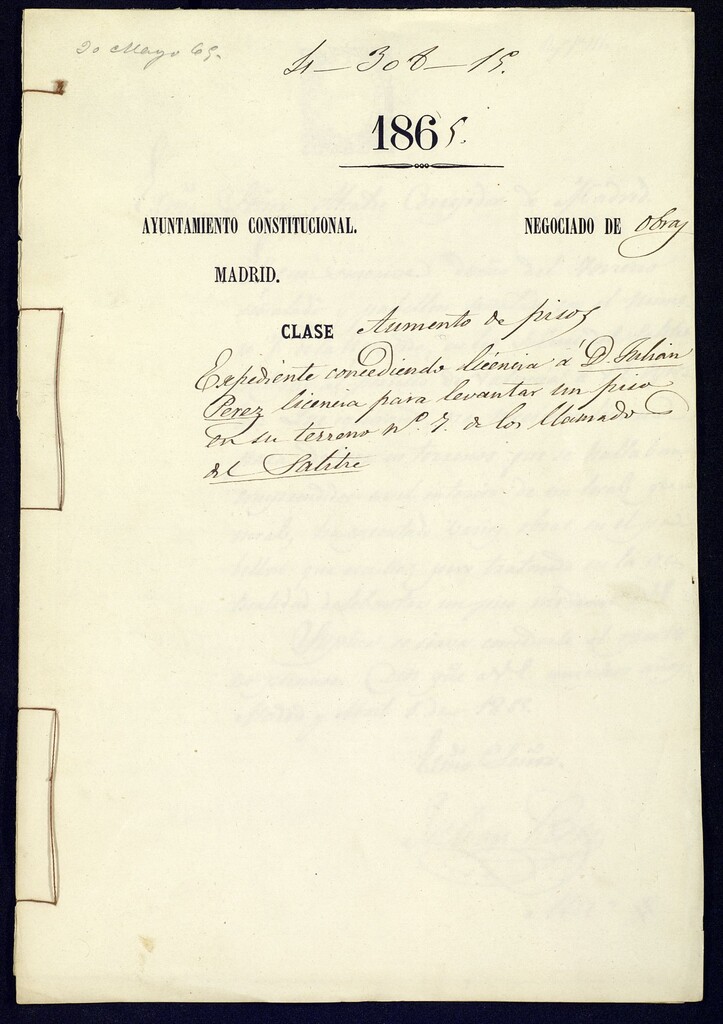 20 Mayo 65.
4-308-15.
1865.
AYUNTAMIENTO CONSTITUCIONAL. NEGOCIADO DE Obras
MADRID.
CLASE Aumento de pisos
Expediente concediendo licencia á D. Julián
Perez licencia para levantar un piso
en su terreno nº. 7. de los llamados
del Salitre